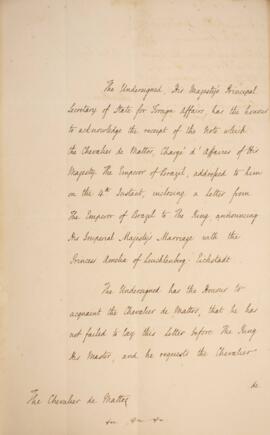 The Undersigned, His Majesty's Principal
Secretary of State for Foreign Affairs, has the honour
to acknowledge the receipt of the Note which
the Chevalier de Mattos, Chargé d'Affaires of His
Majesty The Emperor of Brazil, addressed to him
on the 4th Instant, inclosing a letter from
The Emperor of Brazil to The King, announcing
His Imperial Majesty's Marriage with the
Princess Amelia of Leuchtenberg Eichstadt.
The Undersigned has the Honour to
acquaint the Chevalier de Mattos, that he has
not failed to lay this letter before The King
His Master, and he requests the Chevalier
de
The Chevalier de Mattos